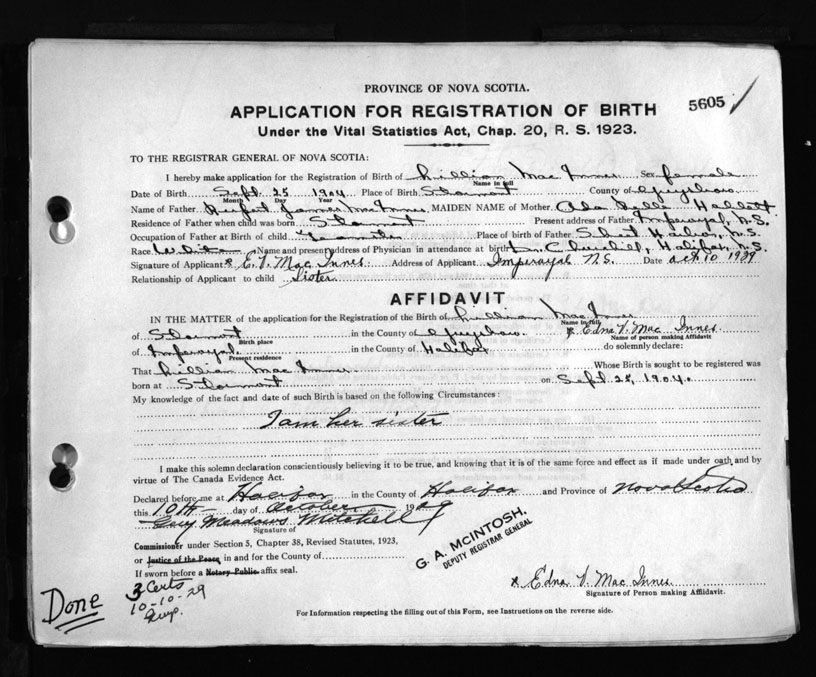 PROVINCE OF NOVA SCOTIA.
APPLICATION FOR REGISTRATION OF BIRTH
5605
Under the Vital Statistics Act, Chap. 20, R. S. 1923.
TO THE REGISTRAR GENERAL OF NOVA SCOTIA:
I hereby make application for the Registration of Birth of Lillian Mac Innes Sex female
Name in full
Date of Birth Sept. 25 1904 Place of Birth Stormont County of Guysboro
Month Day Year
Name of Father Rupert James MacInnes MAIDEN NAME of Mother Ada Hallett
Residence of Father when child was born Stormont Present address of Father Imperoyal, N.S.
Occupation of Father at Birth of child Place of birth of Father N.S.
Race White Name and present address of Physician in attendance at birth Churchill, Halifax, N.S.
Signature of Applicant x E. V. Mac Innes Address of Applicant Imperoyal N.S. Date Oct 10 1929
Relationship of Applicant to child Sister
AFFIDAVIT
IN THE MATTER of the application for the Registration of the Birth of Lillian Mac Innes
Name in full
of Stormont in the County of Guysboro. x Edna V. Mac Innes
Birth place Name of person making Affidavit
of Imperoyal in the County of Halifax do solemnly declare:
Present residence
That Lillian Mac Innes Whose Birth is sought to be registered was
born at Stormont on Sept. 25, 1904.
My knowledge of the fact and date of such Birth is based on the following Circumstances:
I am her sister
I make this solemn declaration conscientiously believing it to be true, and knowing that it is of the same force and effect as if made under oath and by
virtue of The Canada Evidence Act.
Declared before me at Halifax in the County of Halifax and Province of Nova Scotia
this 10th day of October 1929
Guy Meadows Mitchell
Signature of
Commissioner under Section 5, Chapter 38, Revised Statutes, 1923,
or Justice of the Peace in and for the County of
If sworn before a Notary Public affix seal.
G. A. MCINTOSH,
DEPUTY REGISTRAR GENERAL
x Edna V. Mac Innes
Signature of Person making Affidavit.
Done
3 Certs
10-10-29
For Information respecting the filling out of this Form, see Instructions on the reverse side.